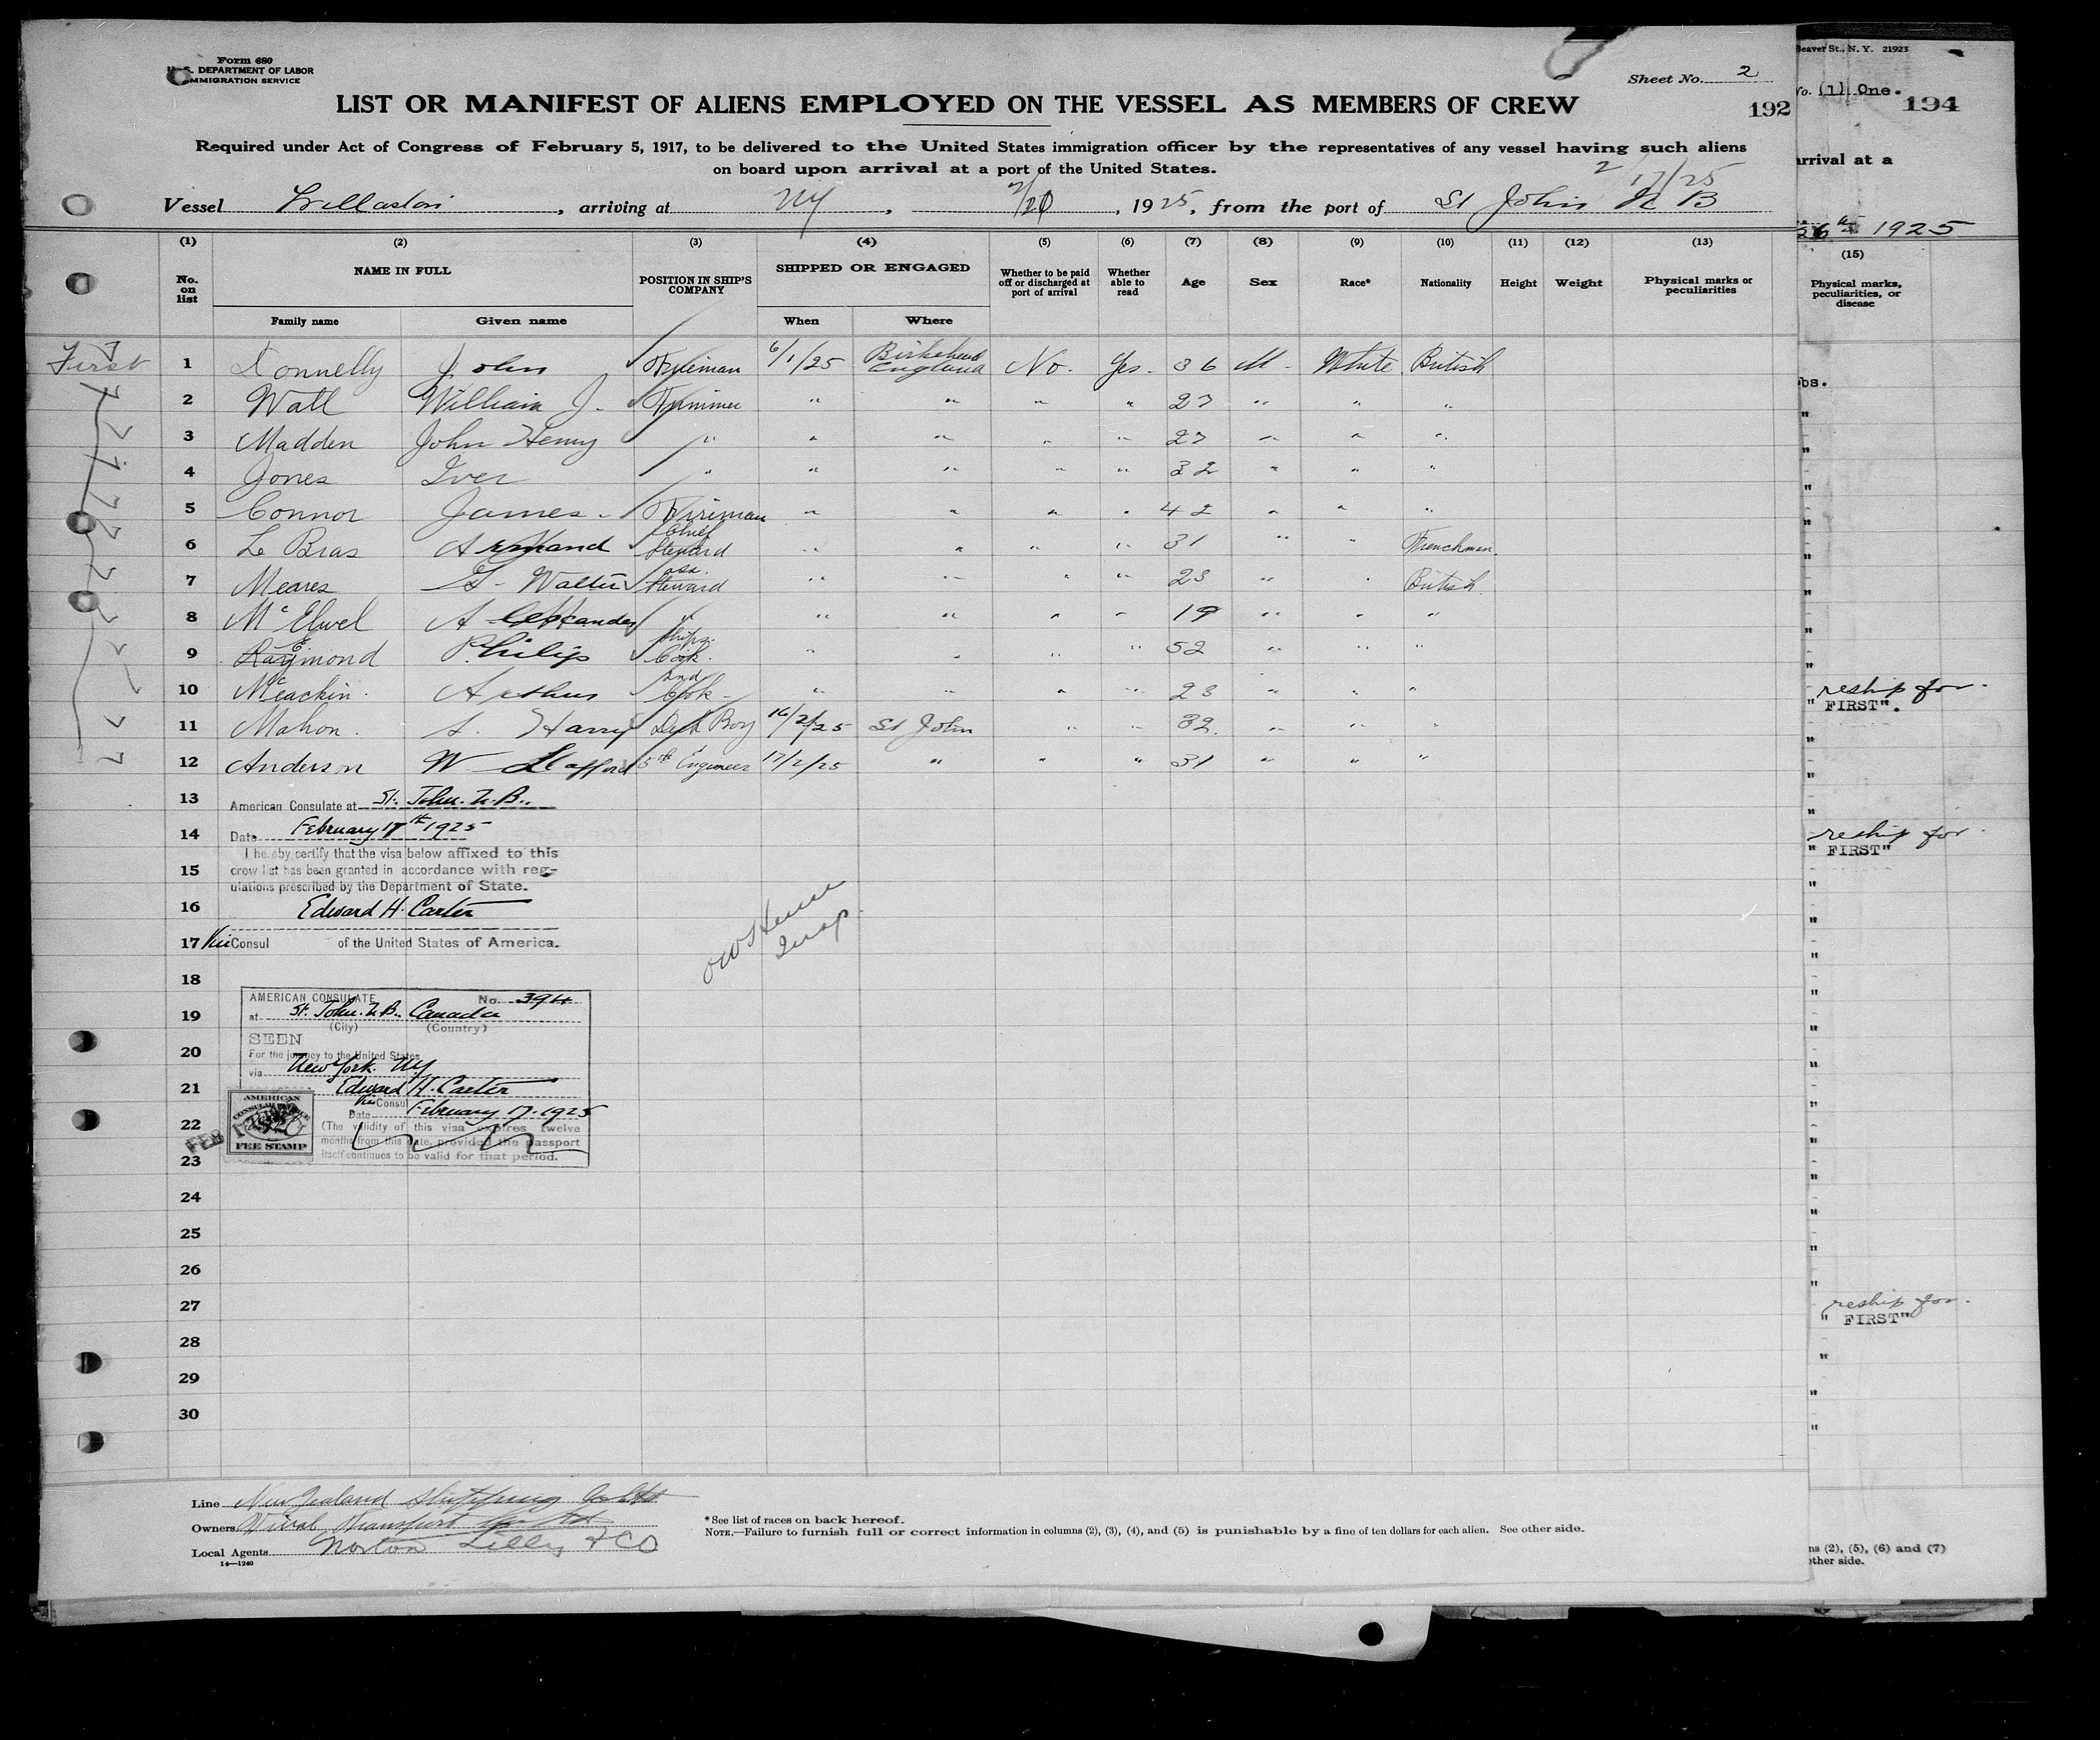 Form 680
U. S. DEPARTMENT OF LABOR
IMMIGRATION SERVICE
Sheet No. 2
LIST OR MANIFEST OF ALIENS EMPLOYED ON THE VESSEL AS MEMBERS OF CREW
192
Required under Act of Congress of February 5, 1917, to be delivered to the United States immigration officer by the representatives of any vessel having such aliens
on board upon arrival at a port of the United States.
2 17/25
Vessel, arriving at NY, 2/20, 1925, from the port of St John N B
(1) (2) (3) (4) (5) (6) (7) (8) (9) (10) (11) (12) (13)
No. on list NAME IN FULL POSITION IN SHIP'S COMPANY SHIPPED OR ENGAGED Whether to be paid off or discharged at port of arrival Whether able to read Age Sex Race* Nationality Height Weight Physical marks or peculiarities
Family name Given name When Where
First 1 Donnelly John Fireman 6/1/25 Birkenhead England No. Yes. 36 M White British
2 Watt William J. Trimmer " " " " 27 " " "
3 Madden John Henry " " " " " 27 " " "
4 Jones Iver " " " " " 32 " " "
5 Connor James Fireman " " " " 42 " " "
6 Le Bras Armand Chief Steward " " " " 31 " " Frenchman.
7 Meares G - Walter ass. Steward " " " " 23 " " British
8 McElwel A Alexander " " " " " 19 " " "
9 Raymond Philip Ships Cook. " " " " 52 " " "
10 Meackin. Arthur 2nd Cook " " " " 23 " " "
11 Mahon. Harry Deck Boy 16/2/25 St John " " 32. " " "
12 Anderson W Stafford 5th Engineer 17/2/25 " " " 31 " " "
13
American Consulate at St. John. N.B.
14
Date February 17th 1925
I hereby certify that the visa below affixed to this
15
crew list has been granted in accordance with reg-
ulations prescribed by the Department of State.
16
Edward H. Carter
17
Vice Consul of the United States of America.
Insp.
18
AMERICAN CONSULATE No. 394
19
at St. John. N.B. Canada
(City) (Country)
SEEN
20
For the journey to the United States
via New York. NY
21
Edward H. Carter
Vice Consul
Date February 17. 1925
22
(The validity of this visa expires twelve
months from this date, provided the passport
itself continues to be valid for that period.
AMERICAN
FEE STAMP
FEB
23
24
25
26
27
28
29
30
Line New Zealand Shipping Co Ltd
Owners Transport Co Ltd
Local Agents Norton Lilly & CO
14—1240
*See list of races on back hereof.
NOTE.—Failure to furnish full or correct information in columns (2), (3), (4), and (5) is punishable by a fine of ten dollars for each alien. See other side.
Beaver St., N. Y. 21923
No. (1) One.
194
arrival at a
26th 1925
(15)
Physical marks, peculiarities, or disease
reship for
" FIRST".
reship for
" FIRST"
reship for
" FIRST"
ns (2), (5), (6) and (7)
other side.